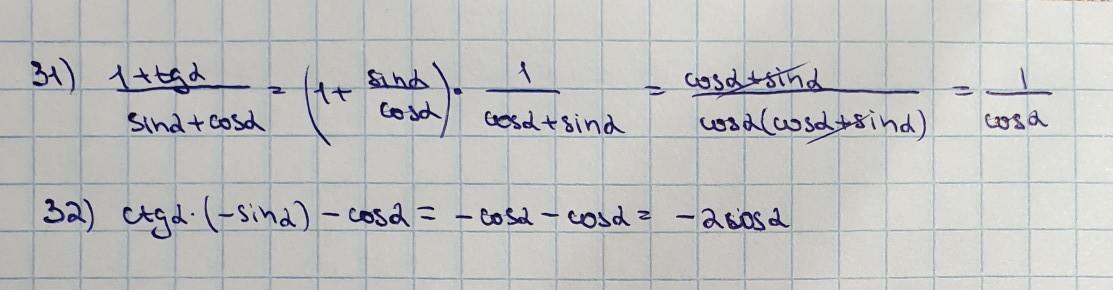 31) (1+tgα)/(sinα+cosα) = (1+ sinα/cosα) · 1/(cosα+sinα) = (cosα+sinα)/(cosα(cosα+sinα)) = 1/cosα
32) ctgα·(-sinα) - cosα = -cosα - cosα = -2cosα